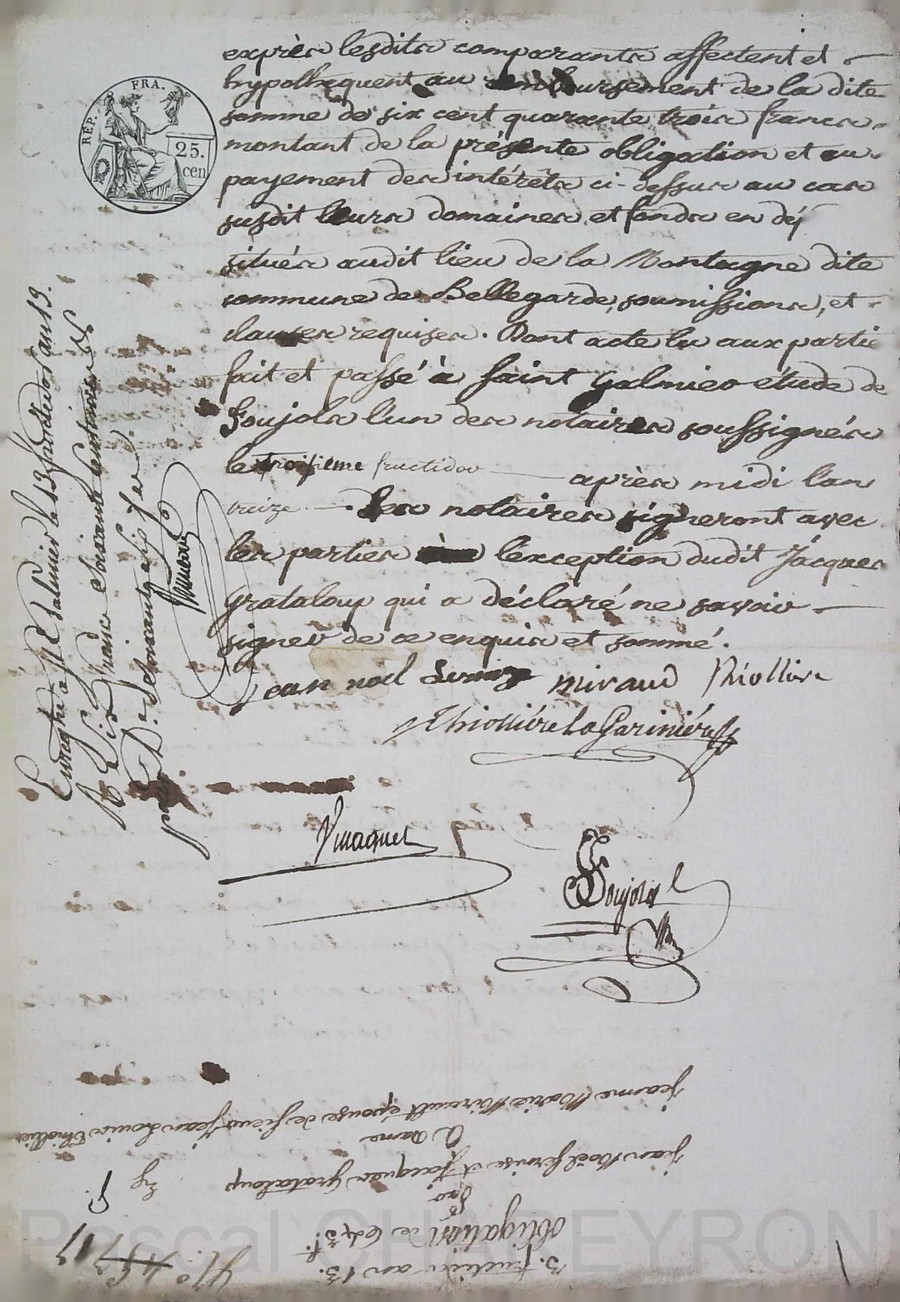 RÉP. FRA.
25.
cen
exprès lesdits comparants affectent et
hypothequent au remboursement de la dite
somme de six cent quarante trois francs
montant de la présente obligation et au
payement des intérêts ci-dessus au cas
susdit leurs domaines et fonds en dé
situés audit lieu de la Montagne dite
commune de Bellegarde, soumissions, et
clauses requises. Dont acte lu aux partie
fait et passé à Saint Galmier étude de
Soujols l'un des notaires soussignés
le troisieme fructidor après midi l'an
treize. Les notaires signeront avec
les parties à l'exception dudit Jacques
grataloup qui a déclaré ne savoir
signer de ce enquis et sommé.
jean noel miraud thiollire
thiolliére la Gariniére
Soujols
Enregistré à St Galmier le 13 fructidor an 13.
R. six francs soixante centimes
jeanne Marie Mirault épouse de sieur jean Louis thiollier
A dame
jean Noël et Jacques Grataloup
par
obligation de 643 f.
3. fructidor an 13.
Pascal CHAPEYRON